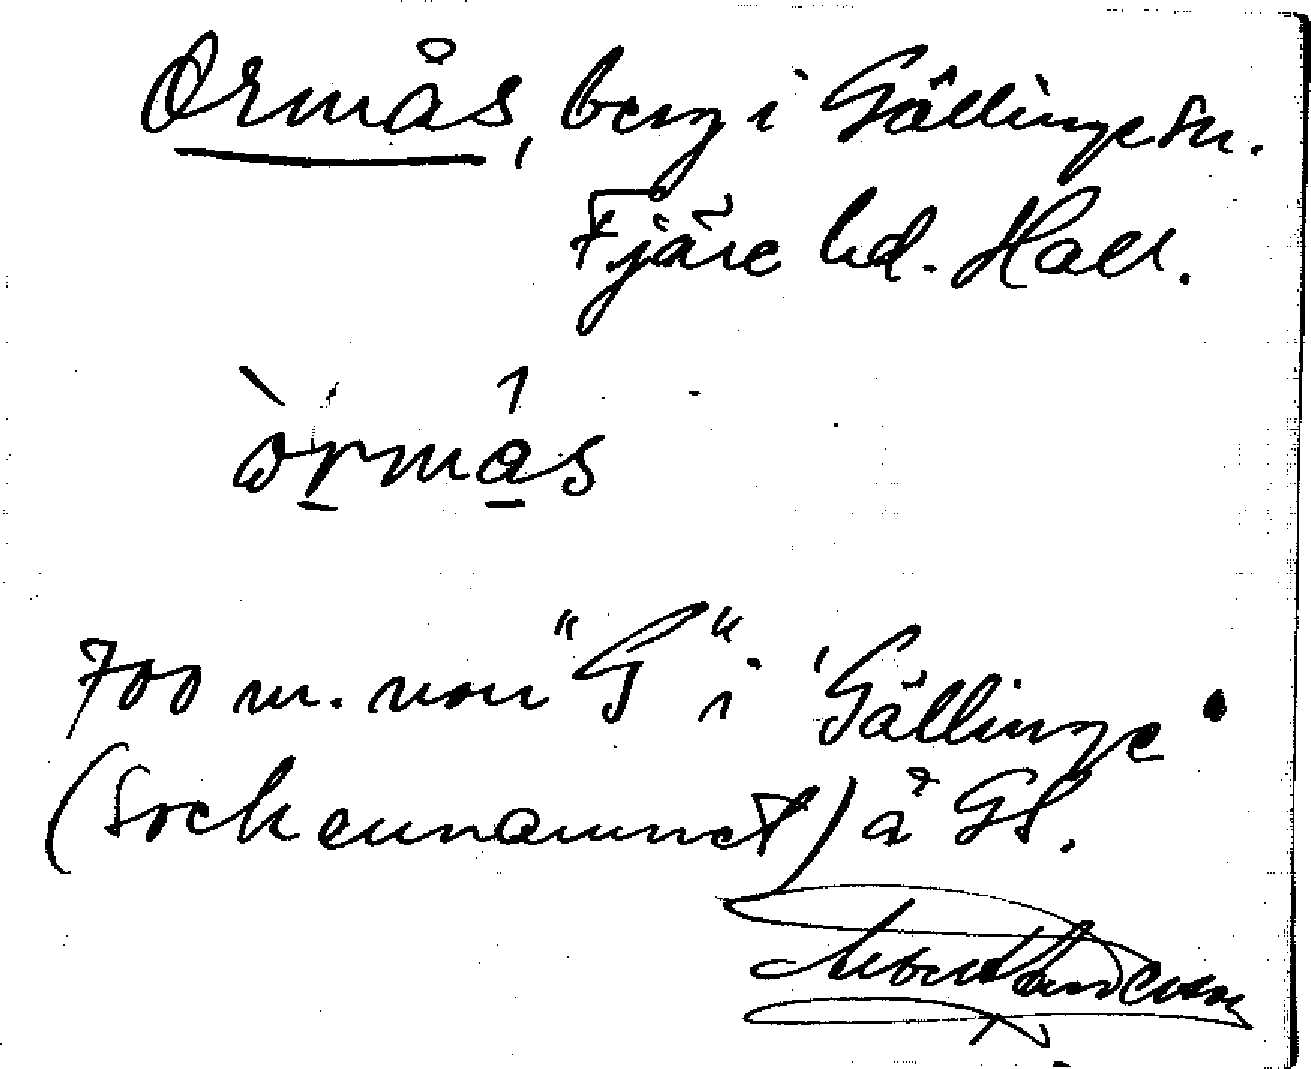 Ormås, berg i Gällinge sn.
Fjäre hd. Hall.
òrmås
700 m. non "G" i 'Gällinge'
(sockennamnet) å GS.